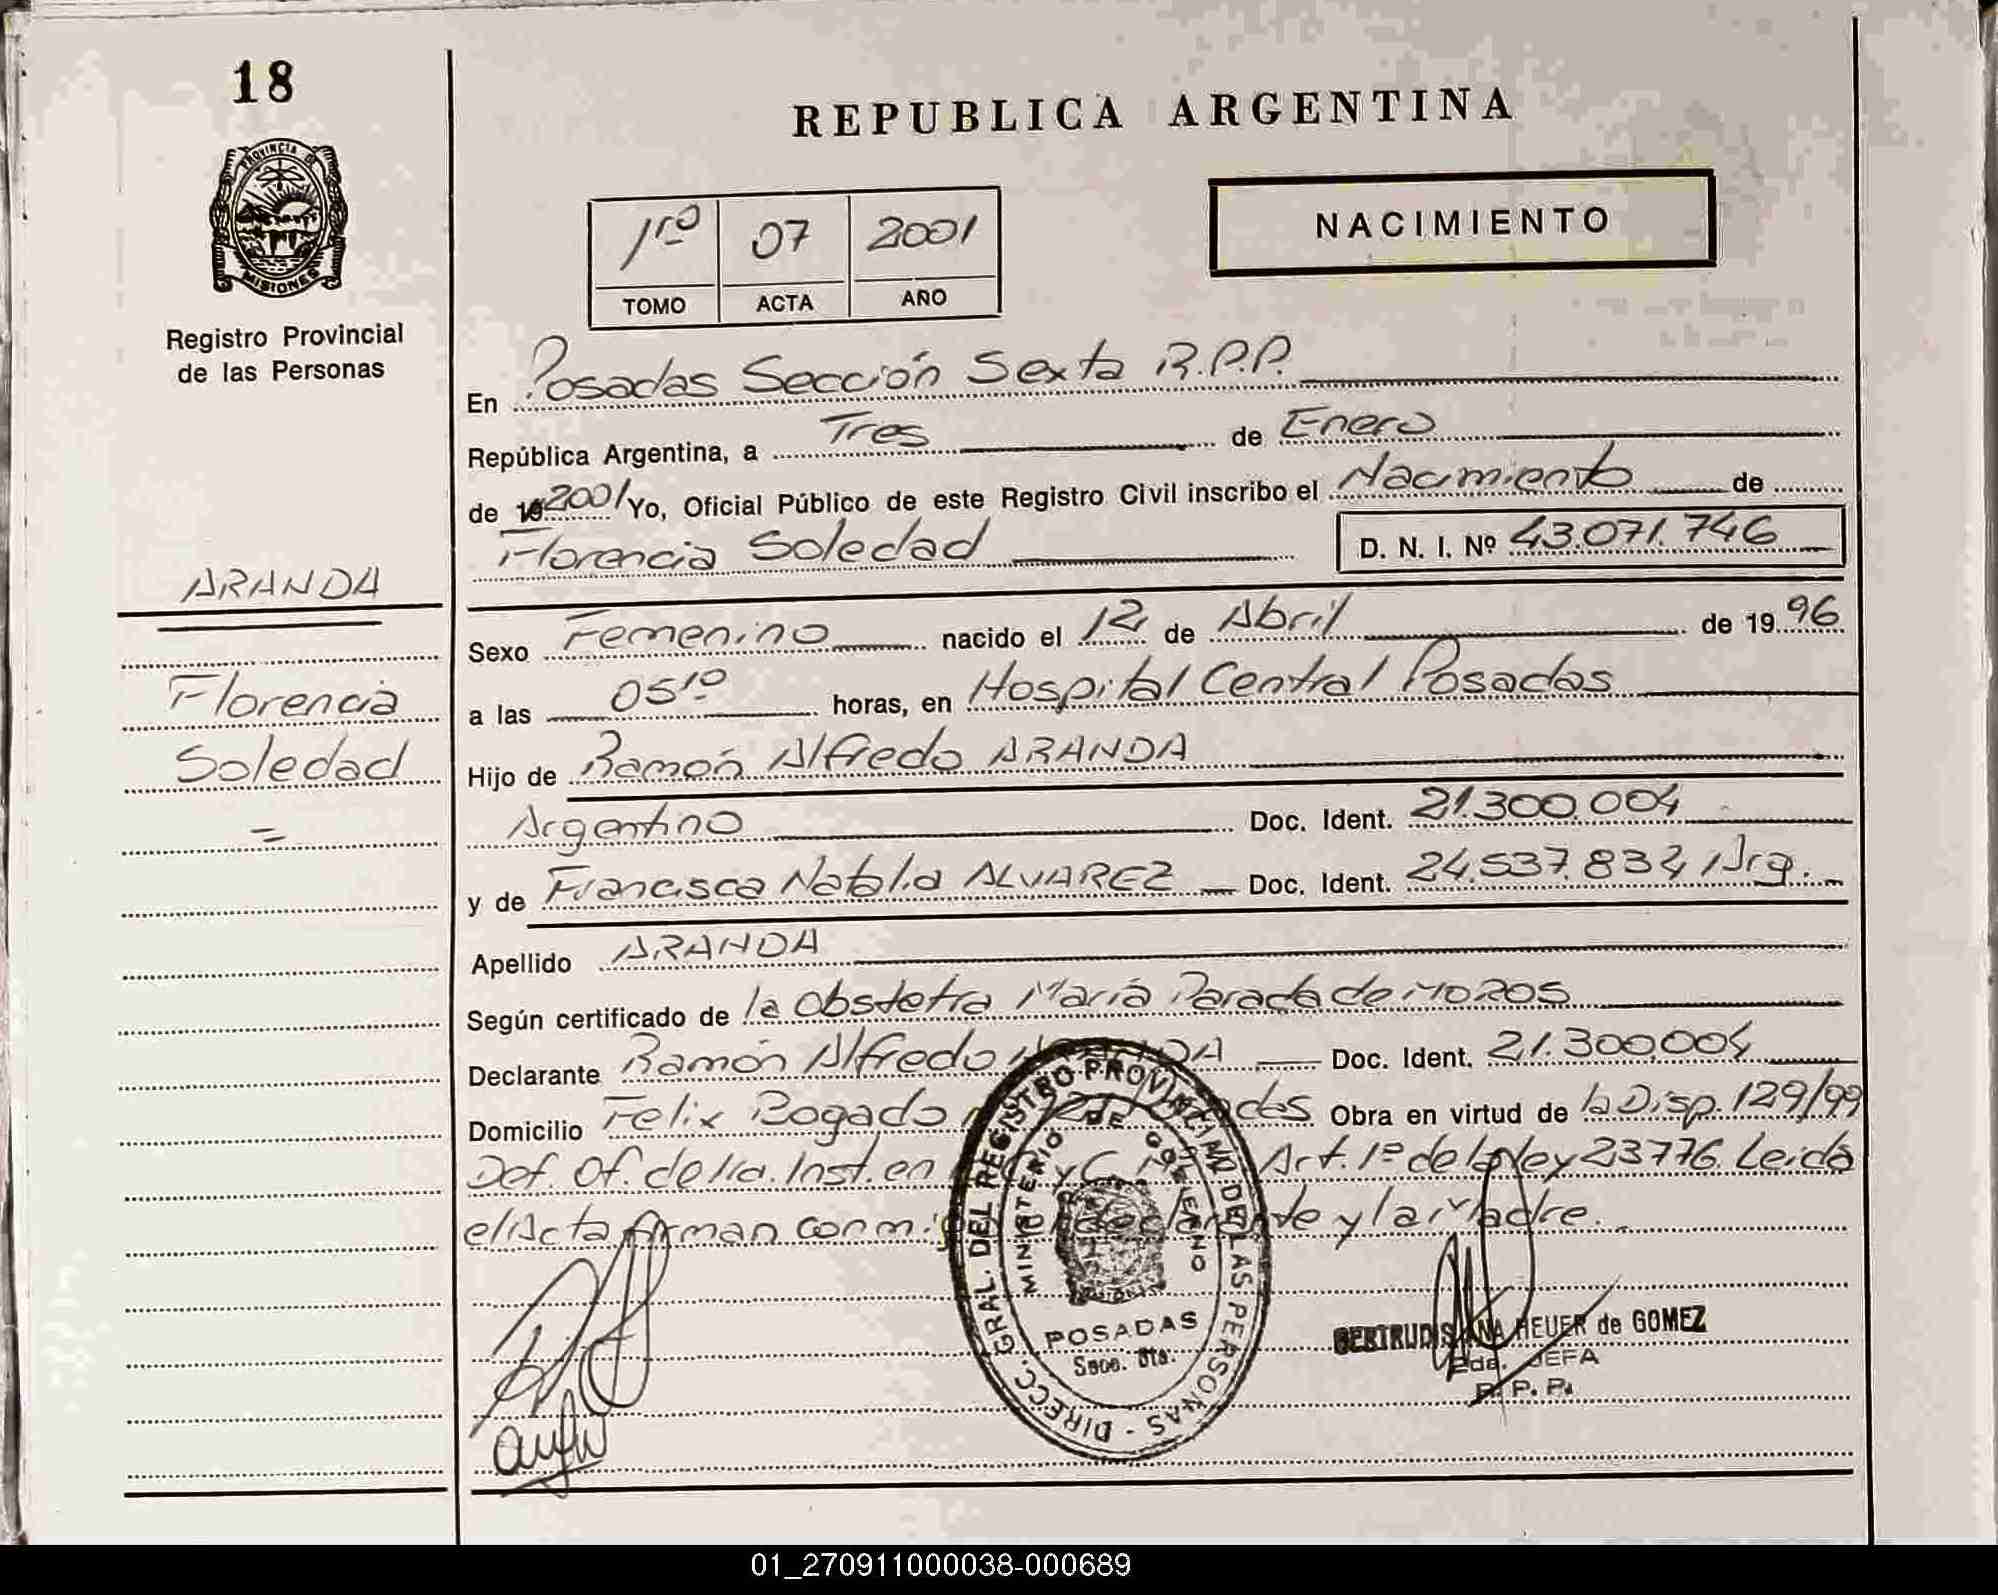 18
PROVINCIA DE
MISIONES
Registro Provincial
de las Personas
ARANDA
Florencia
Soledad
=
REPUBLICA ARGENTINA
1ro 07 2001
TOMO ACTA AÑO
NACIMIENTO
En Posadas Sección Sexta R.P.P.
República Argentina, a Tres de Enero
de 19 2001 Yo, Oficial Público de este Registro Civil inscribo el Nacimiento de
Florencia Soledad D. N. I. Nº 43.071.746
Sexo Femenino nacido el 12 de Abril de 19 96
a las 05 10 horas, en Hospital Central Posadas
Hijo de Ramón Alfredo ARANDA
Argentino Doc. Ident. 21.300.004
y de Francisca Natalia ALVAREZ Doc. Ident. 24.537.832 Arg.
Apellido ARANDA
Según certificado de la Obstetra María Parada de MOROS
Declarante Ramón Alfredo ARANDA Doc. Ident. 21.300.004
Domicilio Felix Bogado Posadas Obra en virtud de la Disp. 129/99
Def. Of. de 1ra. Inst. en y C. Art. 1º de la Ley 23776. Leída
el Acta firman conmigo el declarante y la Madre.
DIRECC. GRAL. DEL REGISTRO PROVINCIAL DE LAS PERSONAS
MINISTERIO DE GOBIERNO
POSADAS
Secc. 6ta.
GERTRUDIS ANA HEUER de GOMEZ
2da. JEFA
R. P. P.
01_270911000038-000689